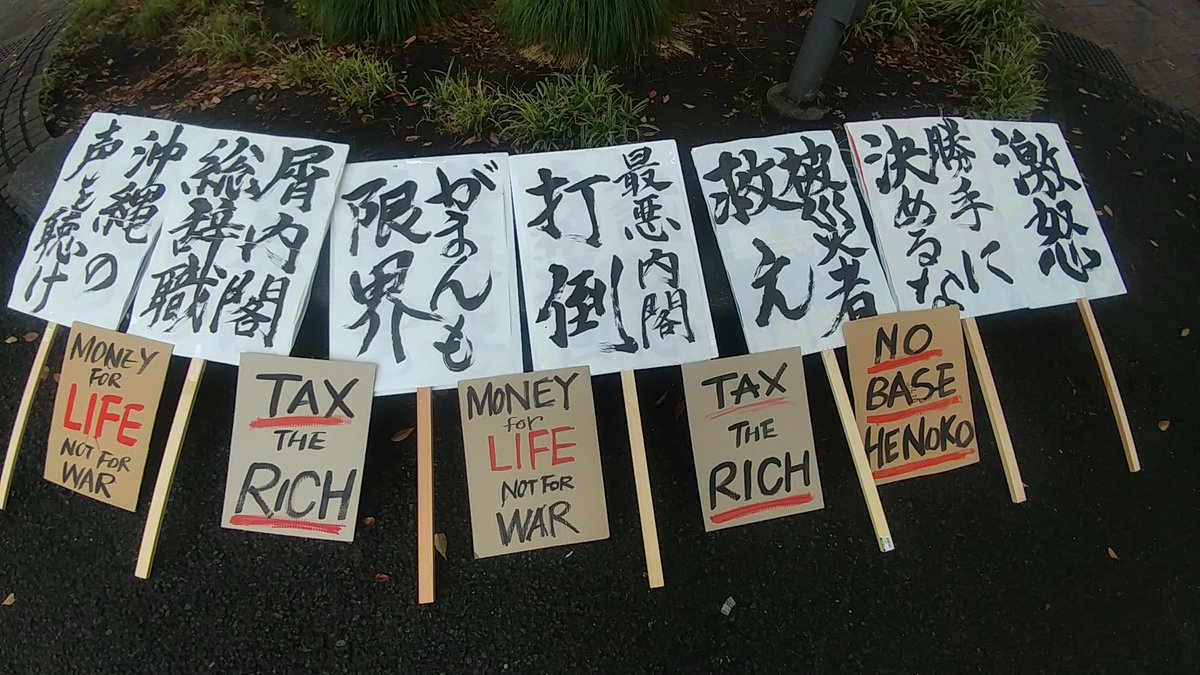 沖縄の
声を聴け
屑内閣
総辞職
がまんも
限界
最悪内閣
打倒
被災者
救え
勝手に
決めるな
激怒
MONEY
FOR
LIFE
NOT FOR
WAR
TAX
THE
RICH
MONEY
for
LIFE
NOT FOR
WAR
TAX
THE
RICH
NO
BASE
HENOKO